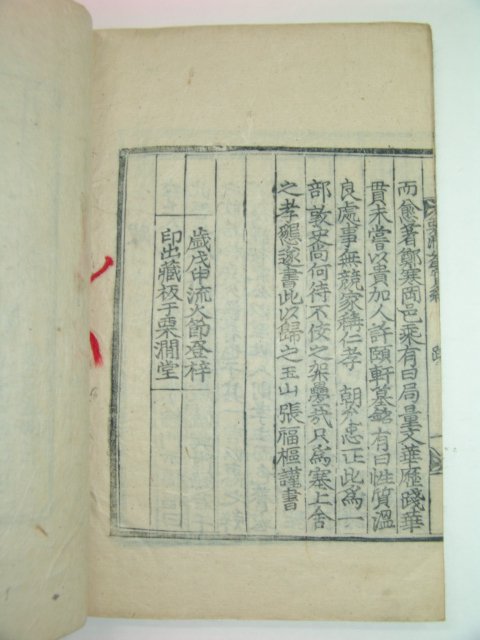 而愈著鄭寒岡邑乘有曰局量文華歷踐華
貫未嘗以貴加人許頤軒墓銘有曰性質溫
良處事無競家稱仁孝 朝多忠正此爲一
部敦史尚何待不佞之架疊哉只爲塞上舍
之孝懇遂書此以歸之玉山張福樞謹書
歲戊申流火節登梓
印出藏板于栗澗堂